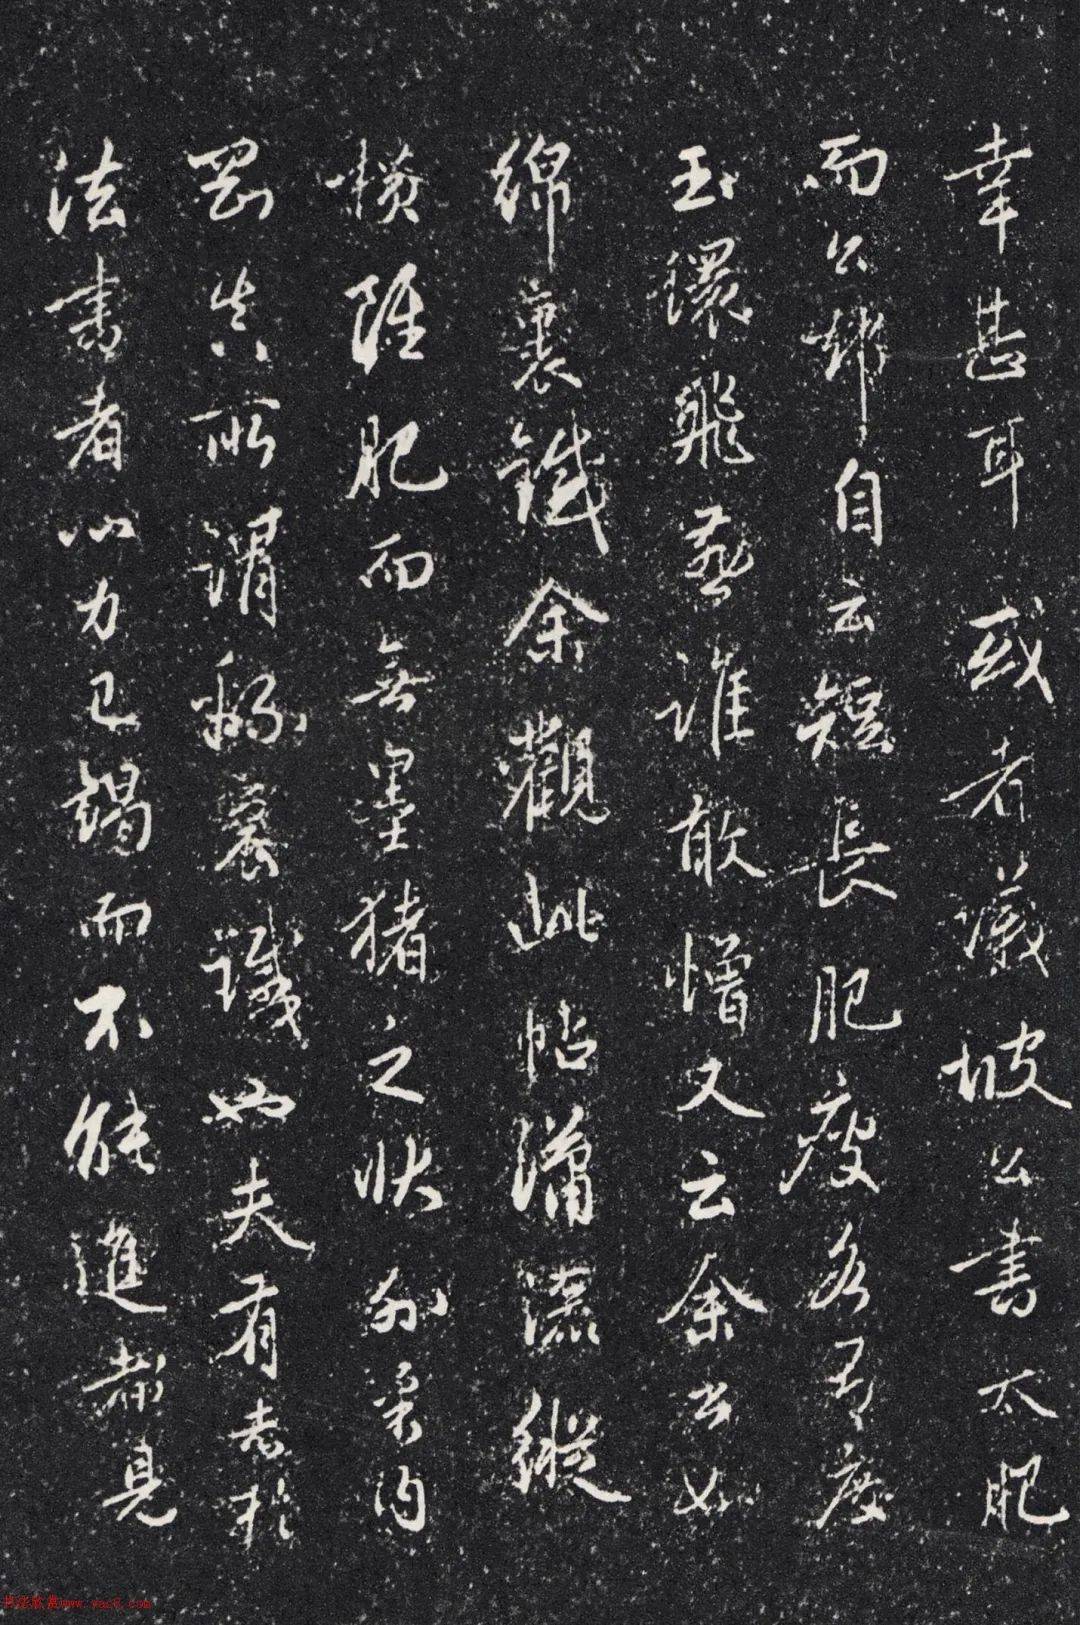 幸甚耳或者議坡公書太肥
而公却自云短長肥瘦各有度
玉環飛燕誰敢憎又云余書如
綿裹鐵余觀此帖瀟洒縱
橫雖肥而無墨豬之狀外柔內
剛真所謂綿裹鐵也夫有志於
法書者心力已竭而不能進者見
书法欣赏www.yac8.com